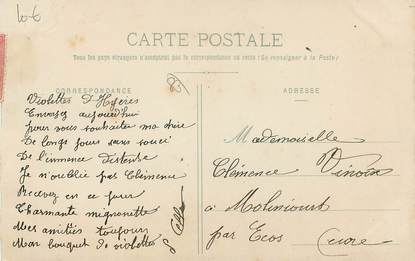 10€
83
CARTE POSTALE
Tous les pays étrangers n'acceptent pas la correspondance au recto (Se renseigner à la Poste)
CORRESPONDANCE
ADRESSE
Violettes d'Hyères
Envoyés aujourd'hui
pour vous souhaiter ma
De longs jours sans souci
De l'immense distance
Je n'oublie pas Clémence
Recevez en ce jour
Charmante mignonnette
Mes amitiés toujours
Mon bouquet de violettes
Mademoiselle
Clémence
à Molincourt
par Ecos
Eure